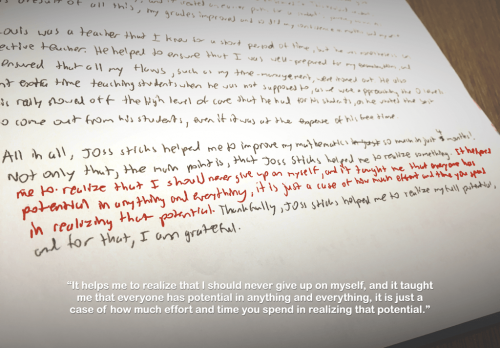 all this, my grades improved and
was a teacher that I knew for a short period of time, but
ective teacher. He helped to ensure that I was well-prepared for my examinations and
ensured that all my flaws, such as my time-management, were ironed out. He also
extra time teaching students when he was not supposed to, as we were approaching the
is really showed off the high level of care that he had for his students, as he makes the
to come out from his students, even if it was at the expense of his free time
All in all, Joss sticks helped me to improve my mathematics so much in just months!
Not only that, the main point is, that Joss Sticks helped me to realize something. It helped
me to realize that I should never give up on myself, and it taught me that everyone has
potential in anything and everything, it is just a case of how much effort and time you spend
in realizing that potential. Thankfully, Joss sticks helped me to realize my full potential,
and for that, I am grateful.
“It helps me to realize that I should never give up on myself, and it taught
me that everyone has potential in anything and everything, it is just a
case of how much effort and time you spend in realizing that potential.”